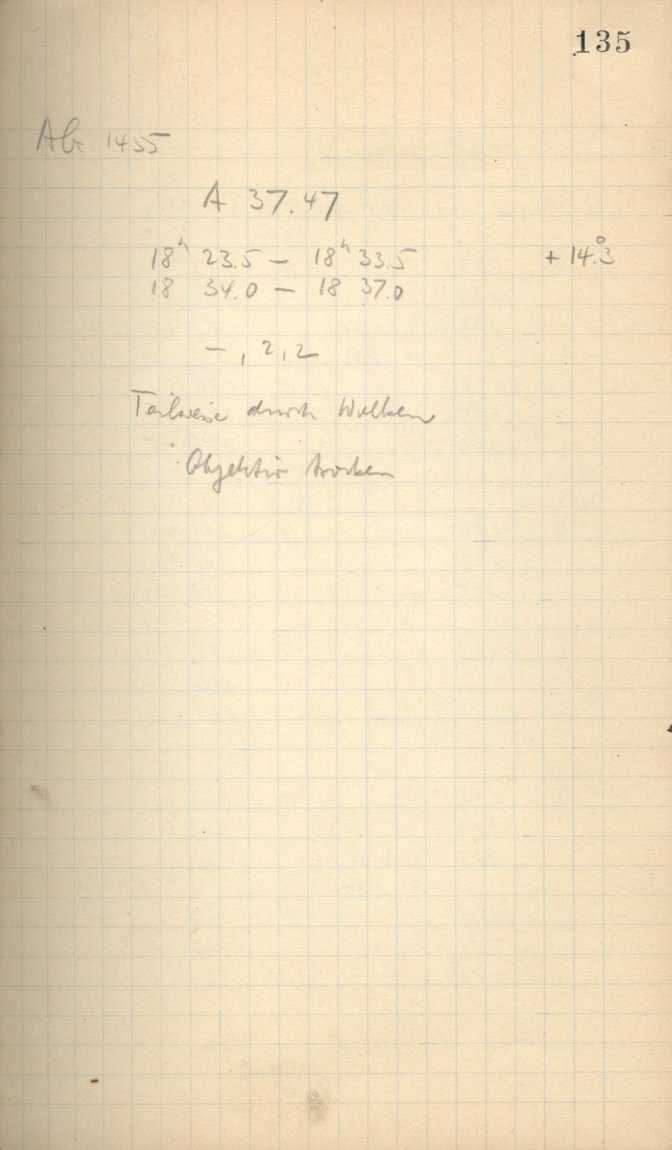 135
Ab 1455
A 37.47
18ʰ 23.5 – 18ʰ 33.5 +14.°3
18 34.0 – 18 37.0
– , 2 , 2
Teilweise durch Wolken
Objektiv trocken